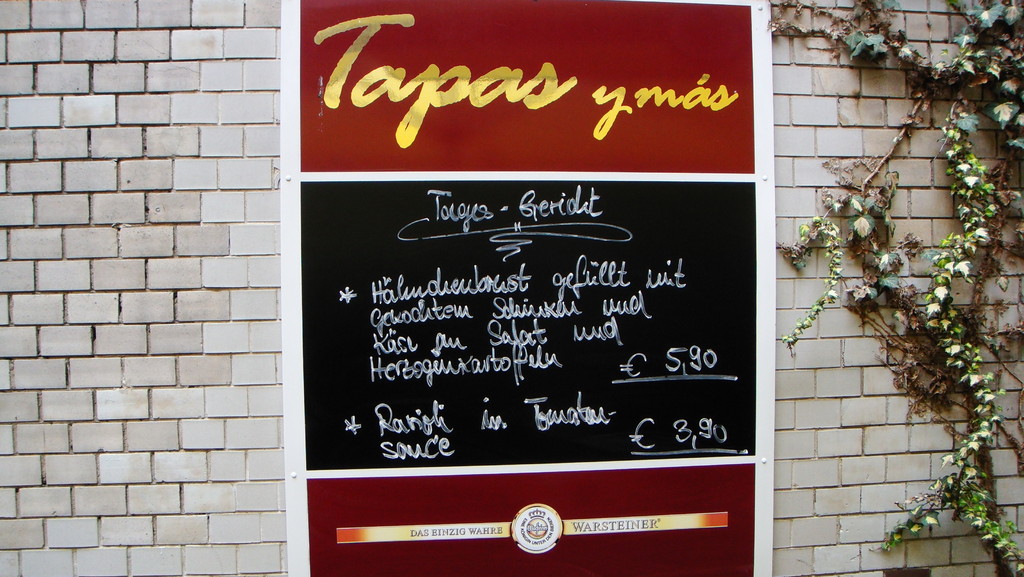 Tapas y más
Tages-Gericht
* Hähnchenbrust gefüllt mit
gekochtem Schinken und
Käse an Salat und
Herzoginkartoffeln € 5,90
* Ravioli in Tomaten-
sauce € 3,90
DAS EINZIG WAHRE WARSTEINER